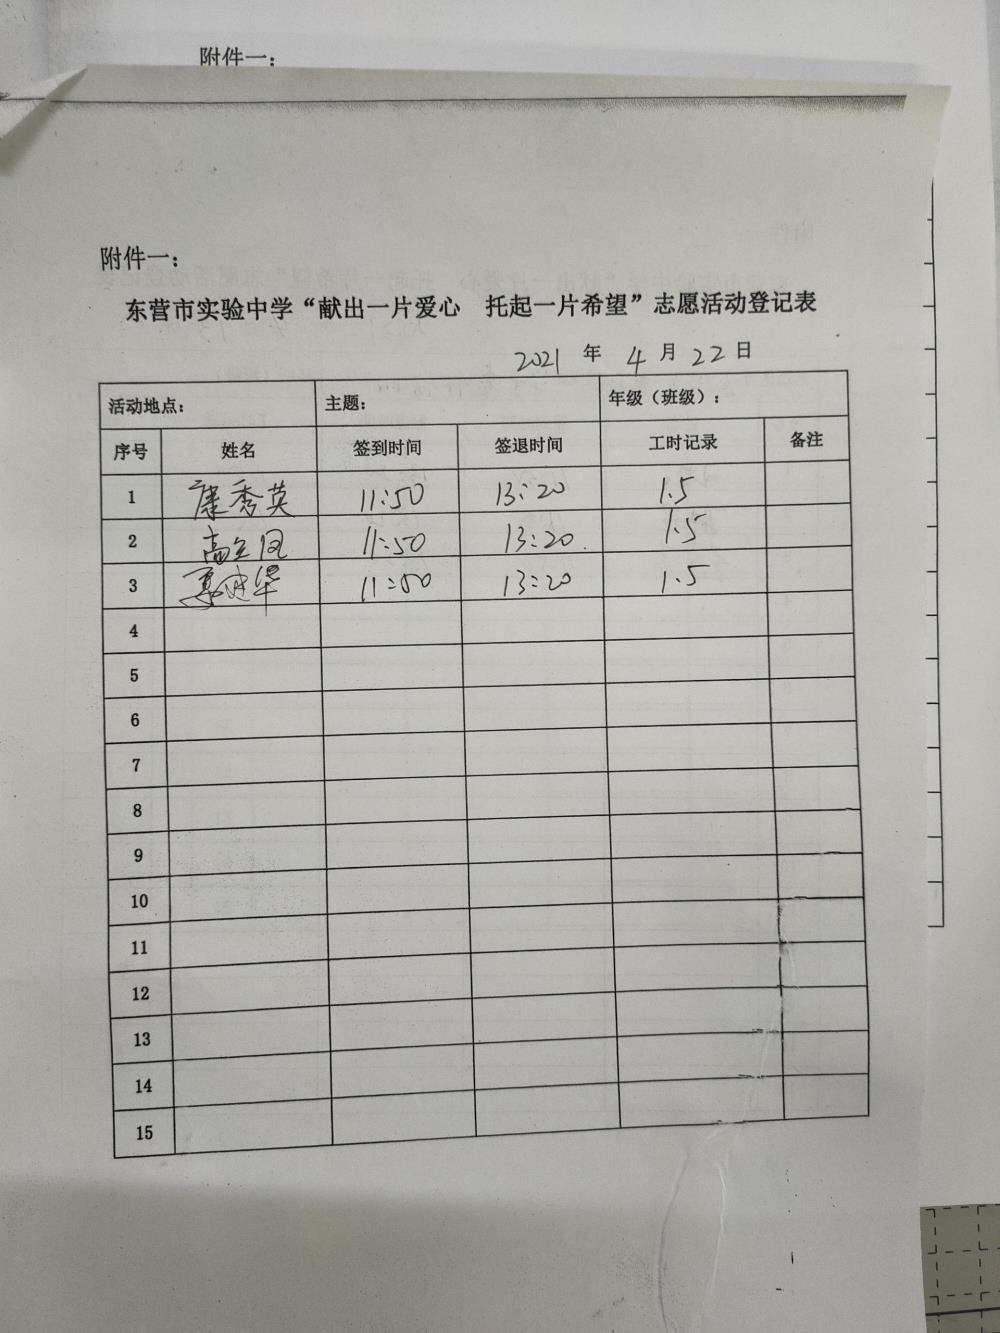 附件一：
附件一：
东营市实验中学“献出一片爱心 托起一片希望”志愿活动登记表
2021 年 4 月 22 日
活动地点： 主题： 年级（班级）：
序号 姓名 签到时间 签退时间 工时记录 备注
1 康秀英 11:50 13:20 1.5
2 高 11:50 13:20 1.5
3 建华 11:50 13:20 1.5
4
5
6
7
8
9
10
11
12
13
14
15